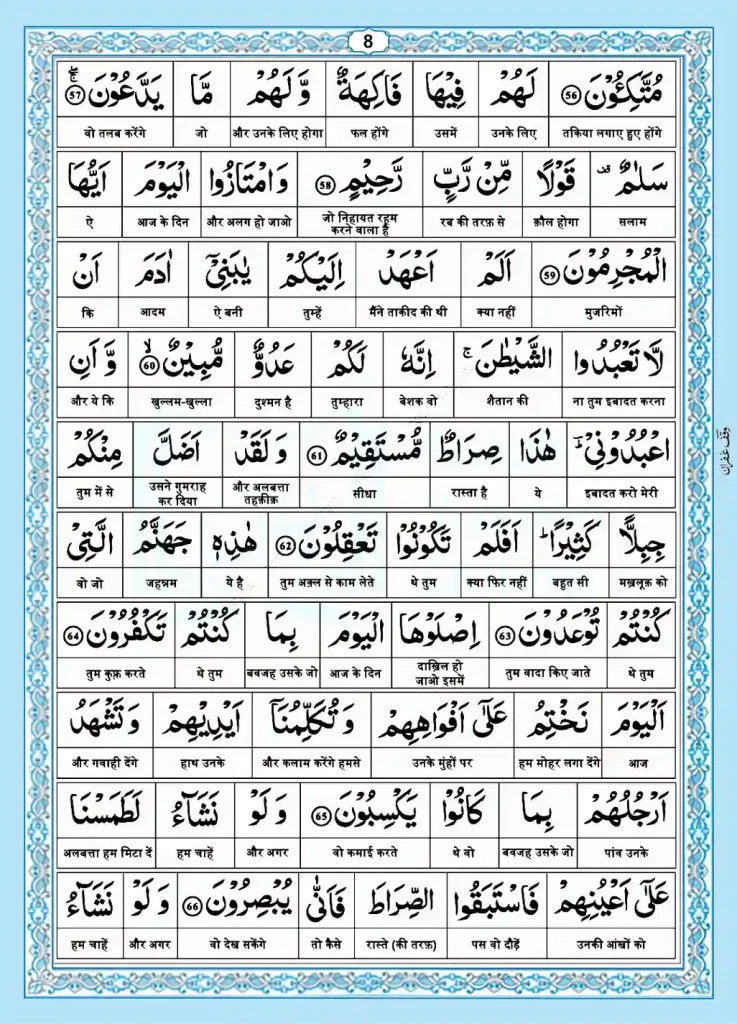 8
مُتَّكِـُٔوْنَ ۝56 لَهُمْ فِيْهَا فَاكِهَةٌ وَّ لَهُمْ مَّا يَدَّعُوْنَ ۝57
तकिया लगाए हुए होंगे उनके लिए उसमें फल होंगे और उनके लिए होगा जो वो तलब करेंगे
سَلٰمٌ قَوْلًا مِّنْ رَّبٍّ رَّحِيْمٍ ۝58 وَ امْتَازُوا الْيَوْمَ اَيُّهَا
सलाम क़ौल होगा रब की तरफ़ से जो निहायत रहम करने वाला है और अलग हो जाओ आज के दिन ऐ
الْمُجْرِمُوْنَ ۝59 اَلَمْ اَعْهَدْ اِلَيْكُمْ يٰبَنِيْۤ اٰدَمَ اَنْ
मुजरिमों क्या नहीं मैंने ताकीद की थी तुम्हें ऐ बनी आदम कि
لَّا تَعْبُدُوا الشَّيْطٰنَ ۚ اِنَّهٗ لَكُمْ عَدُوٌّ مُّبِيْنٌ ۝60 وَّ اَنِ
ना तुम इबादत करना शैतान की बेशक वो तुम्हारा दुश्मन है खुल्लम-खुल्ला और ये कि
اعْبُدُوْنِيْ ؕ هٰذَا صِرَاطٌ مُّسْتَقِيْمٌ ۝61 وَ لَقَدْ اَضَلَّ مِنْكُمْ
इबादत करो मेरी ये रास्ता है सीधा और अलबत्ता तहक़ीक़ उसने गुमराह कर दिया तुम में से
وقف غفران
جِبِلًّا كَثِيْرًا ؕ اَفَلَمْ تَكُوْنُوْا تَعْقِلُوْنَ ۝62 هٰذِهٖ جَهَنَّمُ الَّتِيْ
मख़लूक़ को बहुत सी क्या फिर नहीं थे तुम तुम अक़्ल से काम लेते ये है जहन्नम वो जो
كُنْتُمْ تُوْعَدُوْنَ ۝63 اِصْلَوْهَا الْيَوْمَ بِمَا كُنْتُمْ تَكْفُرُوْنَ ۝64
थे तुम तुम वादा किए जाते दाख़िल हो जाओ इसमें आज के दिन बवजह उसके जो थे तुम तुम कुफ़्र करते
اَلْيَوْمَ نَخْتِمُ عَلٰۤى اَفْوَاهِهِمْ وَ تُكَلِّمُنَاۤ اَيْدِيْهِمْ وَ تَشْهَدُ
आज हम मोहर लगा देंगे उनके मुंहों पर और कलाम करेंगे हमसे हाथ उनके और गवाही देंगे
اَرْجُلُهُمْ بِمَا كَانُوْا يَكْسِبُوْنَ ۝65 وَ لَوْ نَشَآءُ لَطَمَسْنَا
पांव उनके बवजह उसके जो थे वो वो कमाई करते और अगर हम चाहें अलबत्ता हम मिटा दें
عَلٰۤى اَعْيُنِهِمْ فَاسْتَبَقُوا الصِّرَاطَ فَاَنّٰى يُبْصِرُوْنَ ۝66 وَ لَوْ نَشَآءُ
उनकी आंखों को पस वो दौड़ें रास्ते (की तरफ़) तो कैसे वो देख सकेंगे और अगर हम चाहें